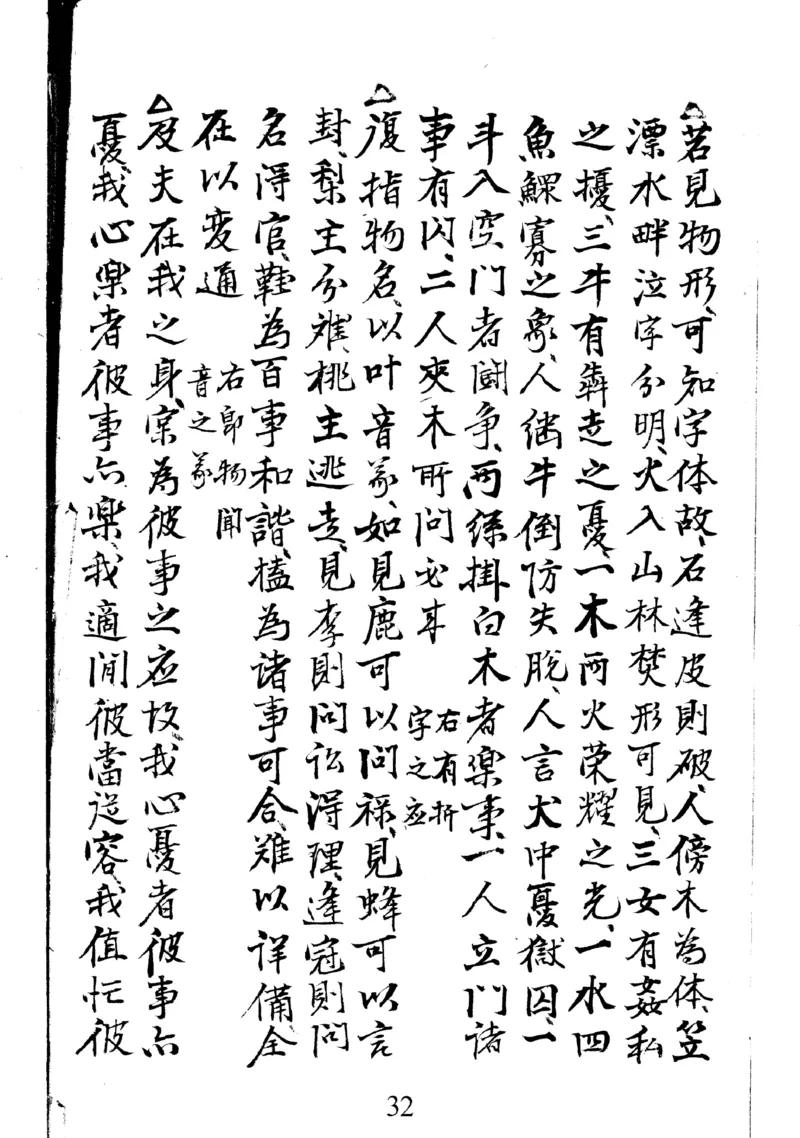 △若見物形、可知字体故、石逢皮則破、人傍木為体、笠
漂水畔泣字分明、火入山林焚形可見、三女有姦私
之擾、三牛有犇走之憂、一木两火荣耀之光、一水四
魚鰥寡之象、人继牛倒防失脱、人言犬中憂獄囚、一
斗入空門者闘争、两絲掛白木者楽事、一人立門諸
事有闪、二人夾木所問必来
右有折
字之应
△復指物名、以叶音義、如見鹿可以問禄、見蜂可以言
封、梨主分难、桃主逃走、見李則問讼得理、逢冠則問
名得官、鞋為百事和諧、榼為諸事可合、难以详備、全
在以変通
右即物闻
音之義
△及夫在我之身、实為彼事之应故、我心憂者彼事亦
憂、我心楽者彼事亦楽、我適閒彼當從容、我值忙彼
32